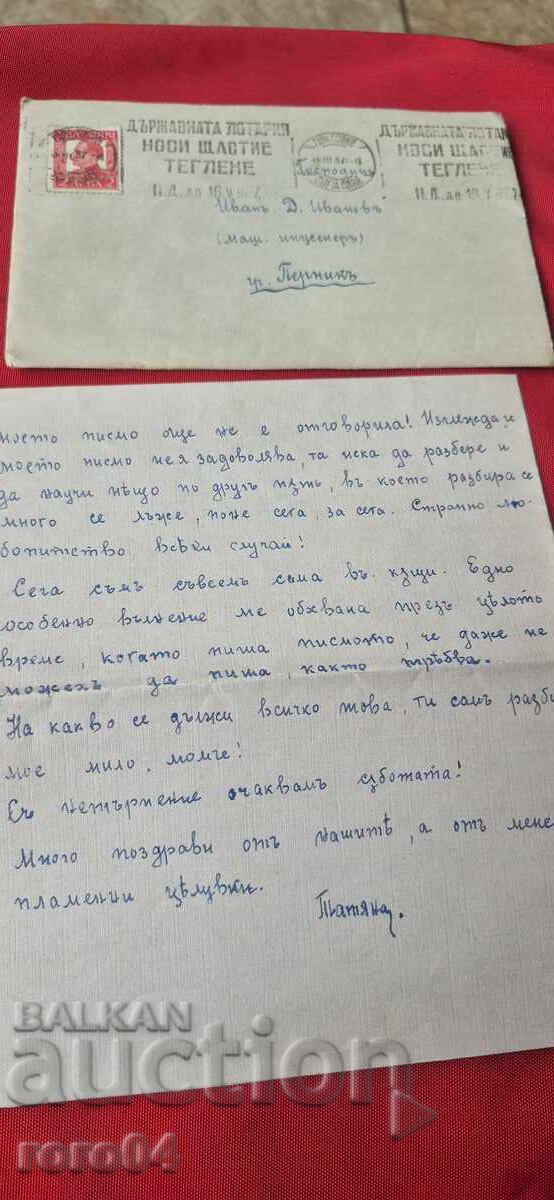 ДЪРЖАВНАТА ЛОТАРИЯ
НОСИ ЩАСТИЕ
ТЕГЛЕНЕ
ДЪРЖАВНАТА ЛОТАР
НОСИ ЩАСТИЕ
ТЕГЛЕНЕ
Господинъ
Иванъ Д. Ивановъ
(маш. инженеръ)
гр. Перникъ
моето писмо още не е отговорила! Изглежда, че
моето писмо не я задоволява, та иска да разбере и
да научи нѣщо по другъ пѫть, въ което разбира се
много се лъже, поне сега, за сега. Странно лю-
бопитство всѣки случай!
Сега съмъ съвсемъ сама въ кѫщи. Едно
особенно вълнение ме обхвана презъ цѣлото
време, когато пиша писмото, че даже не
можехъ да пиша, както трѣбва.
На какво се дължи всичко това, ти самъ разби
мое мило, момче!
Съ нетърпение очаквамъ сѫботата!
Много поздрави отъ нашитѣ, а отъ мене
пламенни цѣлувки.
Татяна.
BALKAN
auction
roro04